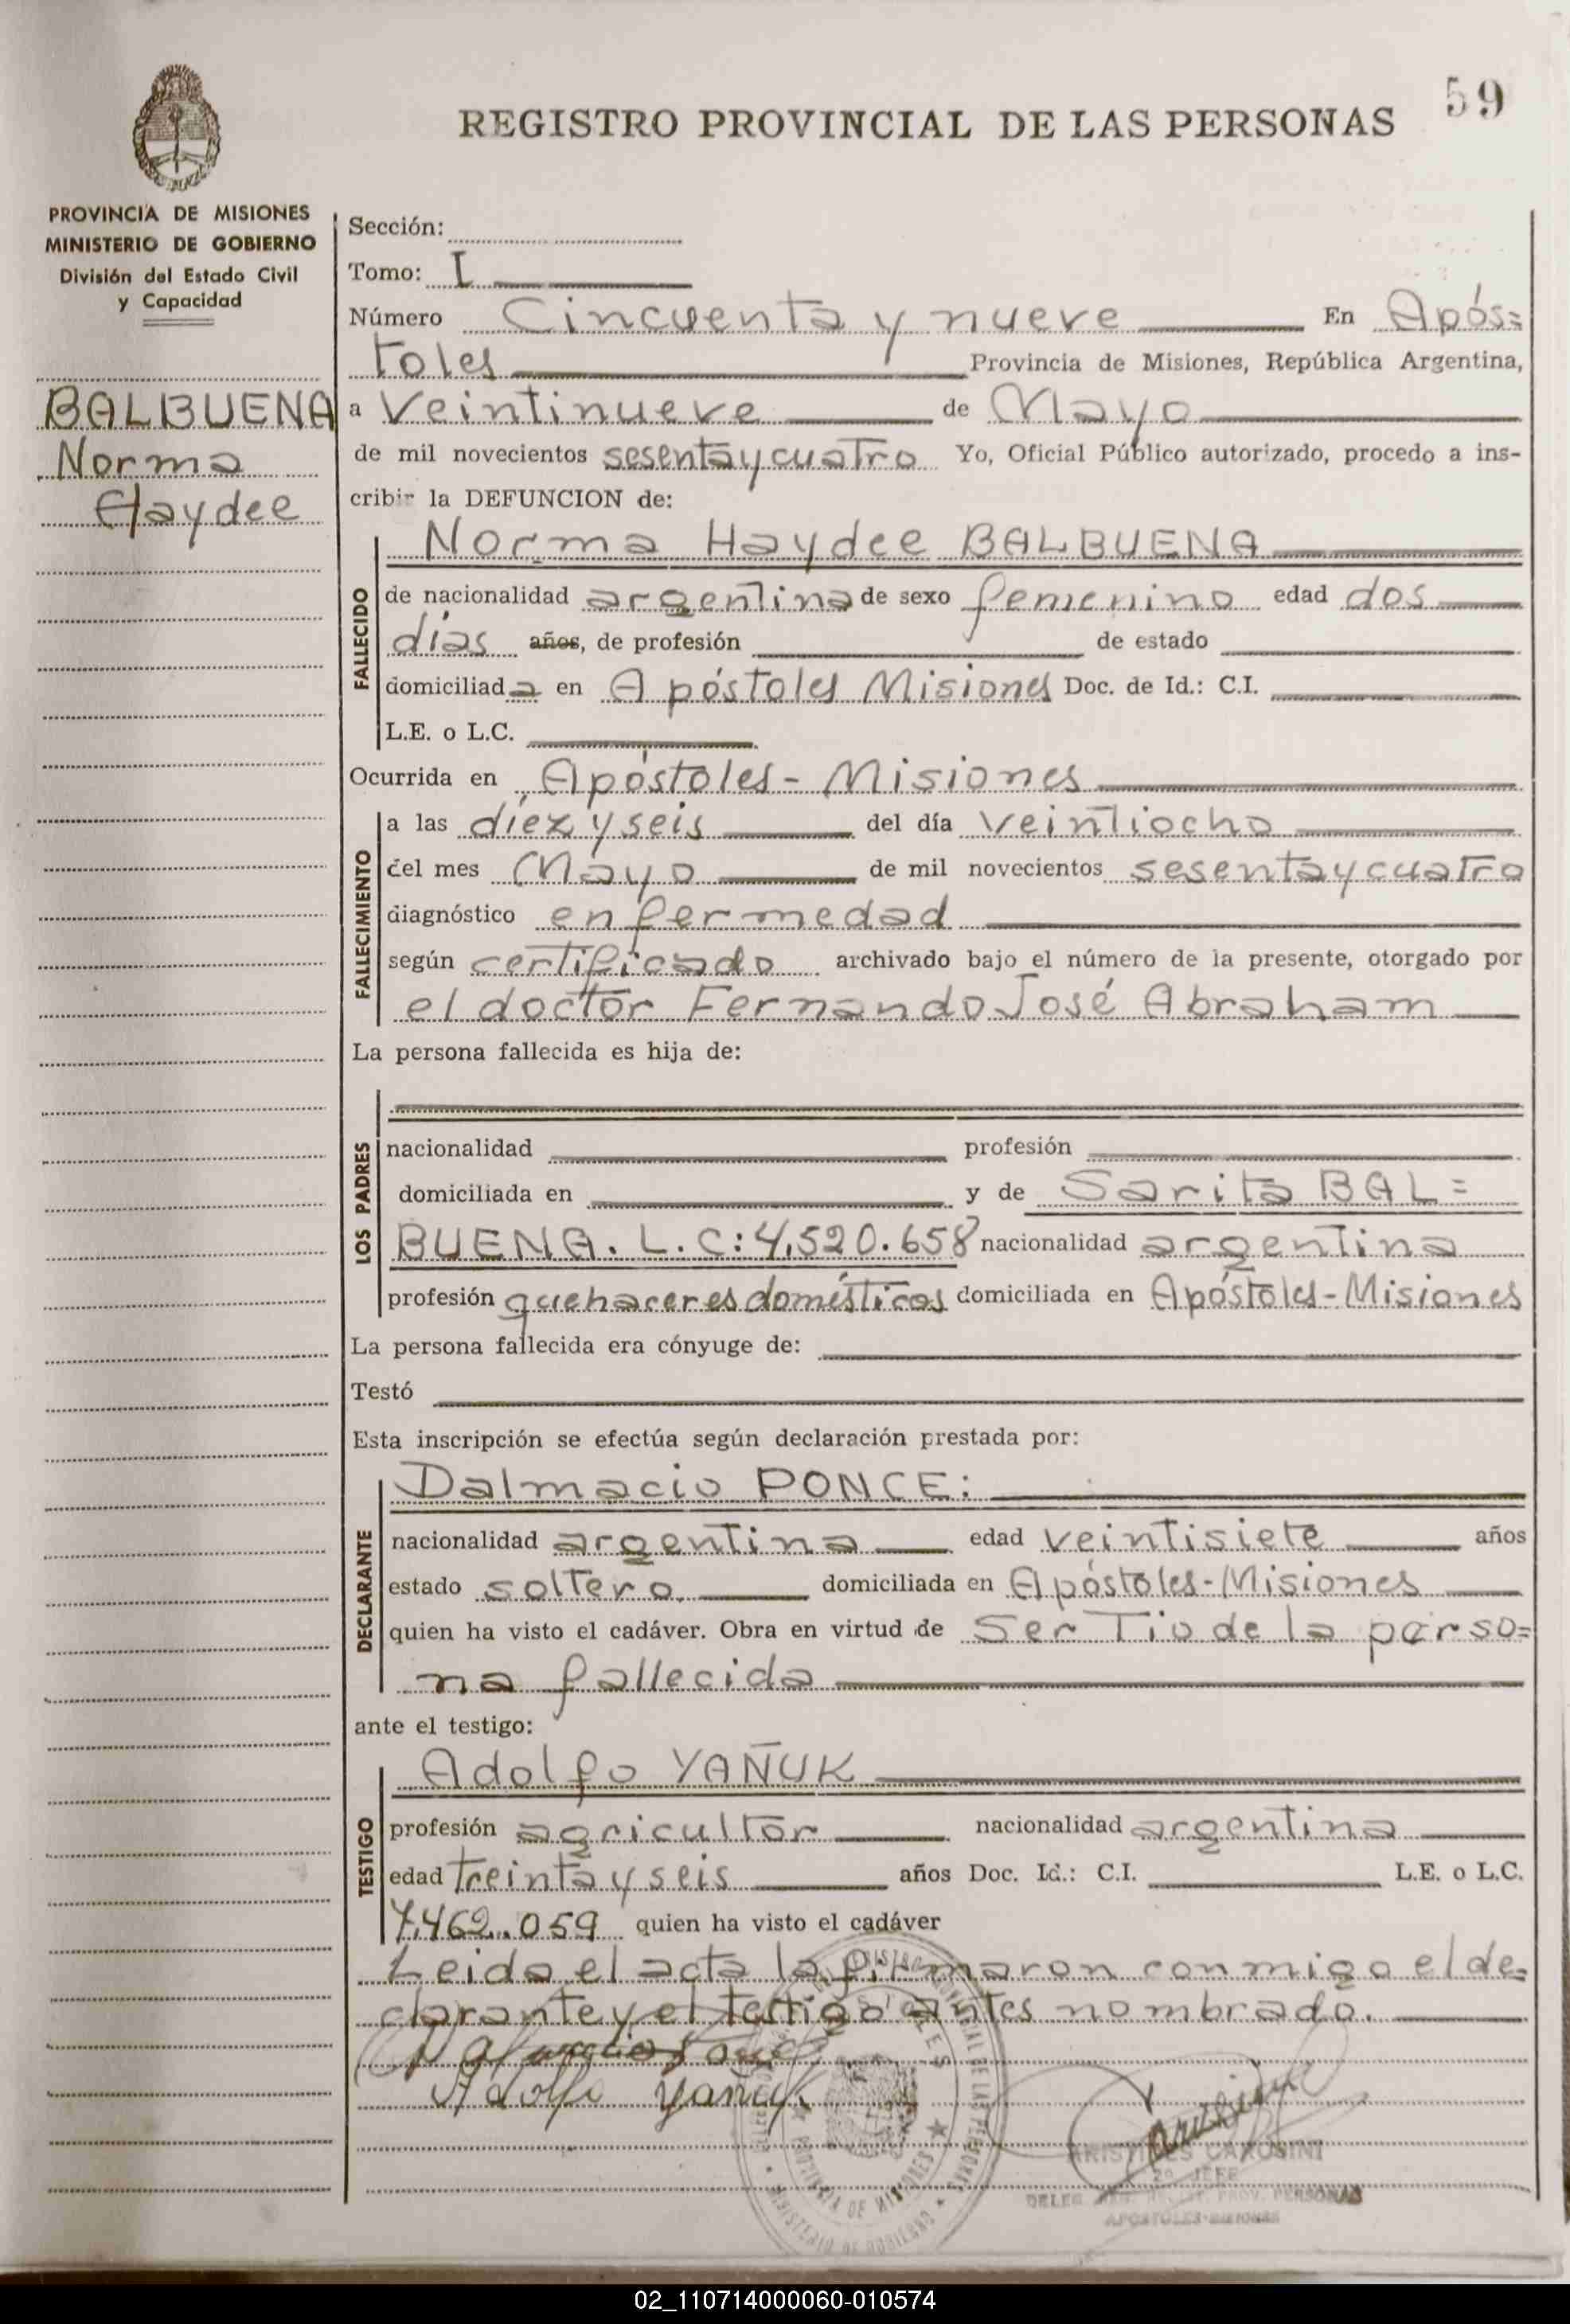 59
REGISTRO PROVINCIAL DE LAS PERSONAS
PROVINCIA DE MISIONES
MINISTERIO DE GOBIERNO
División del Estado Civil
y Capacidad
BALBUENA
Norma
Haydee
Sección:
Tomo: I
Número Cincuenta y nueve En Após=
toles Provincia de Misiones, República Argentina,
a Veintinueve de Mayo
de mil novecientos sesenta y cuatro Yo, Oficial Público autorizado, procedo a ins-
cribir la DEFUNCION de:
FALLECIDO
Norma Haydee BALBUENA
de nacionalidad argentina de sexo femenino edad dos
días años, de profesión de estado
domiciliada en Apóstoles Misiones Doc. de Id.: C.I.
L.E. o L.C.
Ocurrida en Apóstoles - Misiones
FALLECIMIENTO
a las díez y seis del día veintiocho
del mes Mayo de mil novecientos sesenta y cuatro
diagnóstico enfermedad
según certificado archivado bajo el número de la presente, otorgado por
el doctor Fernando José Abraham
La persona fallecida es hija de:
LOS PADRES
nacionalidad profesión
domiciliada en y de Sarita BAL=
BUENA. L.C: 4,520.658 nacionalidad argentina
profesión quehaceres domésticos domiciliada en Apóstoles - Misiones
La persona fallecida era cónyuge de:
Testó
Esta inscripción se efectúa según declaración prestada por:
DECLARANTE
Dalmacio PONCE:
nacionalidad argentina edad veintisiete años
estado soltero domiciliada en Apóstoles - Misiones
quien ha visto el cadáver. Obra en virtud de Ser Tio de la perso=
na fallecida
ante el testigo:
TESTIGO
Adolfo YAÑUK
profesión agricultor nacionalidad argentina
edad treinta y seis años Doc. Id.: C.I. L.E. o L.C.
7.462.059 quien ha visto el cadáver
Leida el acta la firmaron conmigo el de=
clarante y el testigo antes nombrado.
Dalmacio Ponce
Adolfo Yañuk
PROVINCIA DE MISIONES
MINISTERIO DE GOBIERNO
ARISTIDES CAROSINI
2º JEFE
PROV. PERSONAS
APOSTOLES-MISIONES
02_110714000060-010574